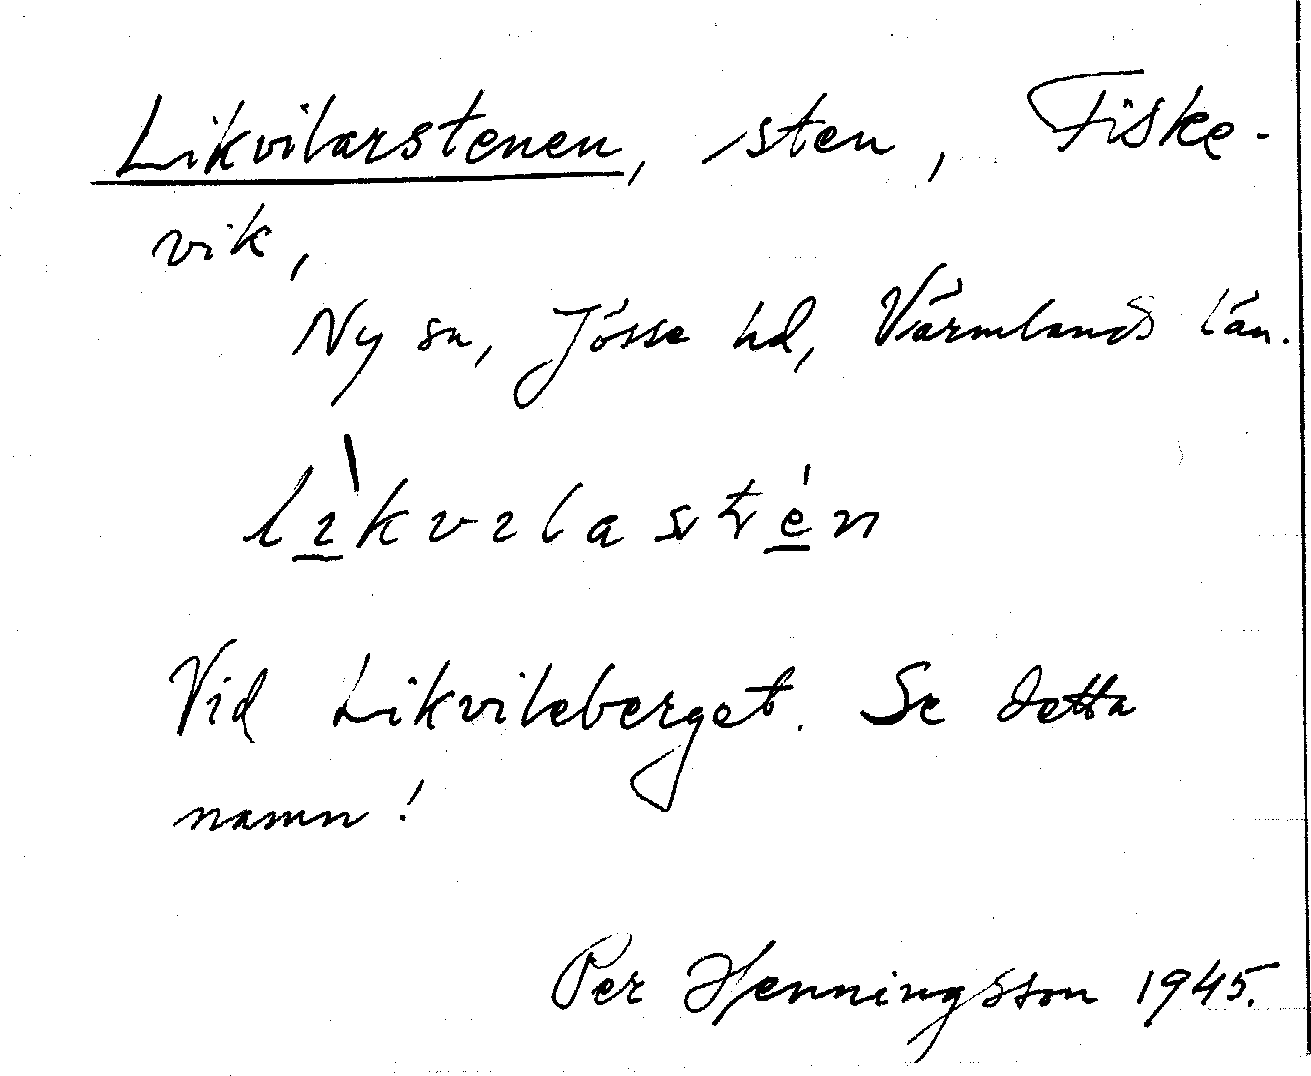 Likvilarstenen, sten, Fiske-
vik,
Ny sn, Jösse hd, Värmlands län.
lìkvilastén
Vid Likvileberget. Se detta
namn!
Per Henningsson 1945.